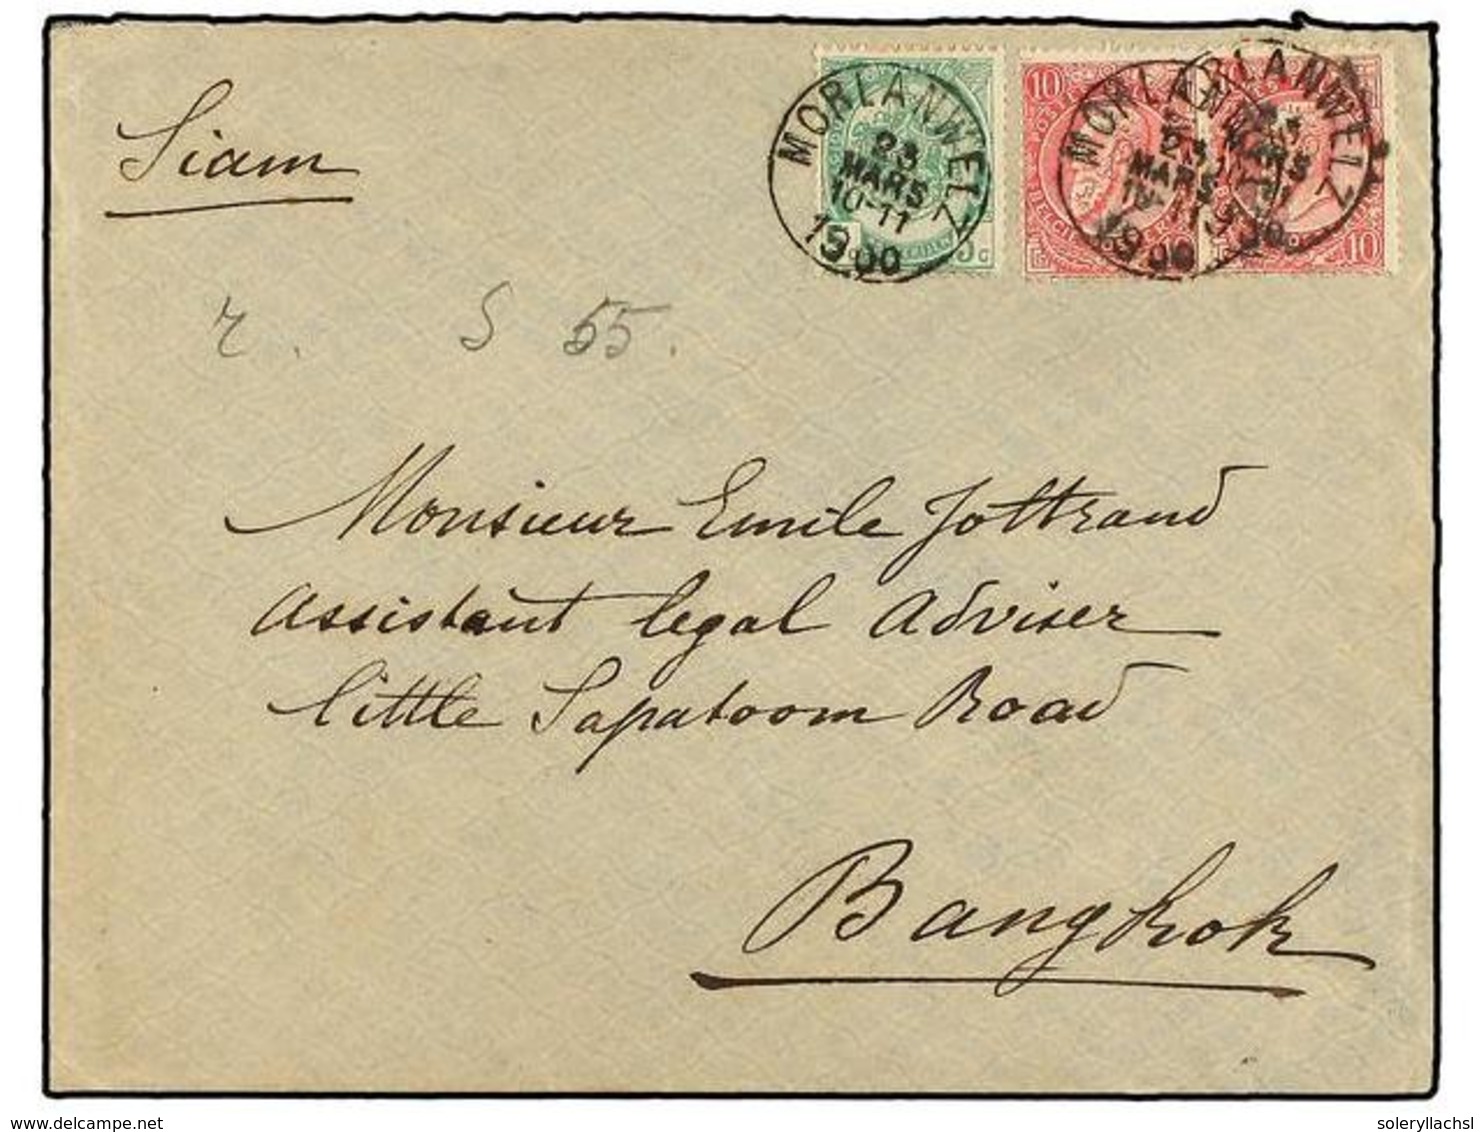 Siam
MORLANWELZ
23
MARS
10-11
1900
5 c
10
MORLANWELZ
23
MARS
10-11
1900
MORLANWELZ
MARS
10
r. S 55.
Monsieur Emile Jottrand
Assistant legal Adviser
little Sapatoom Road
Bangkok
www.delcampe.net
soleryllachsl